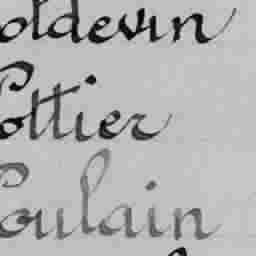 oldevin
Pottier
Poulain